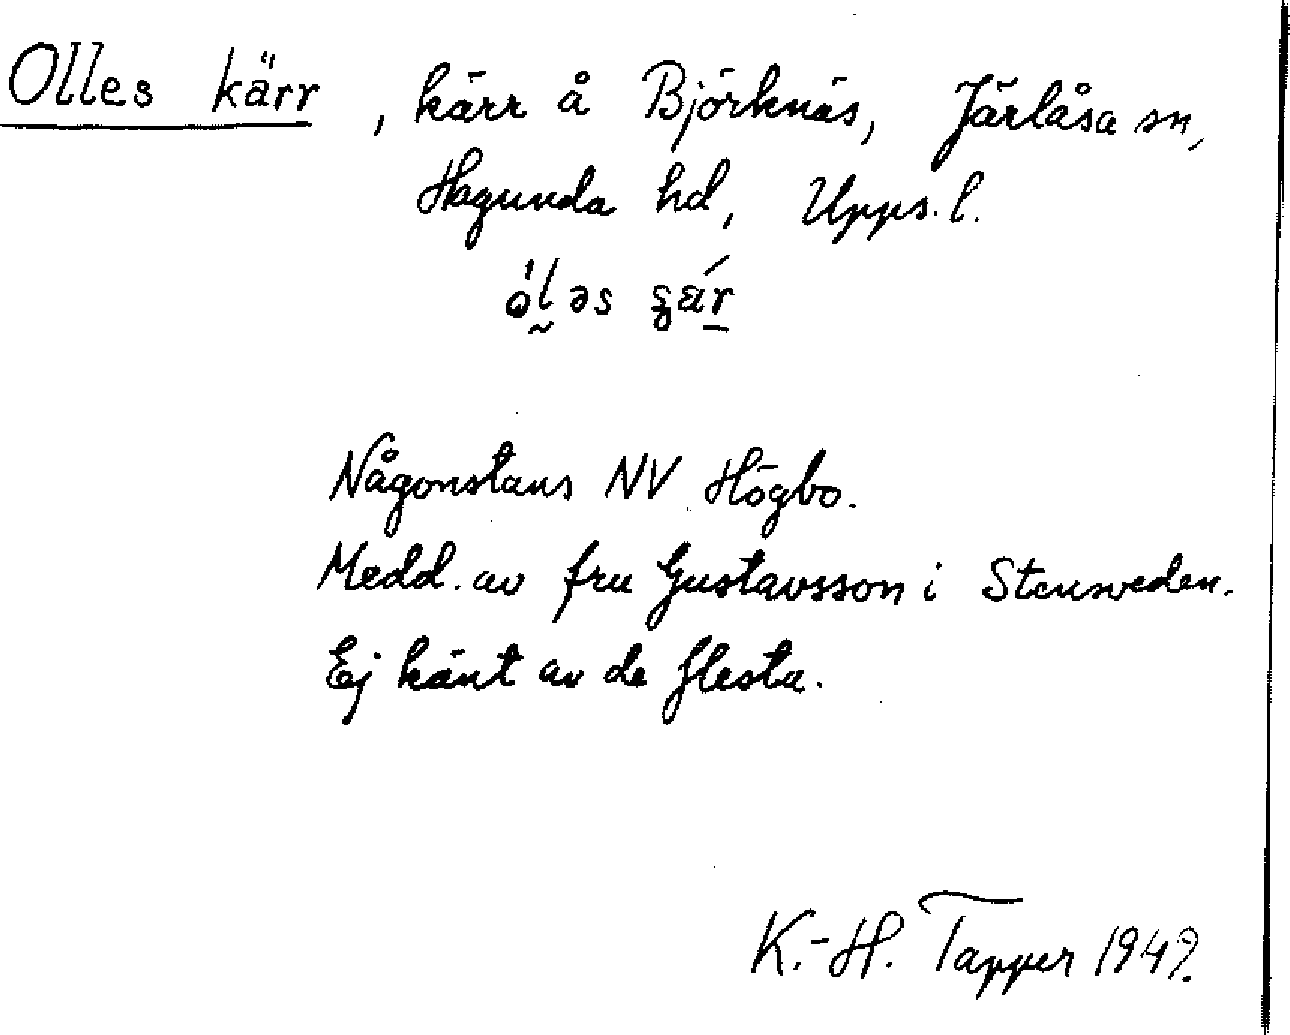 Olles kärr, kärr å Björknäs, Järlåsa sn,
Hagunda hd, Upps. l.
Någonstans NV Högbo.
Medd. av fru Gustavsson i Stensveden.
Ej känt av de flesta.
K.-H. Tapper 194?